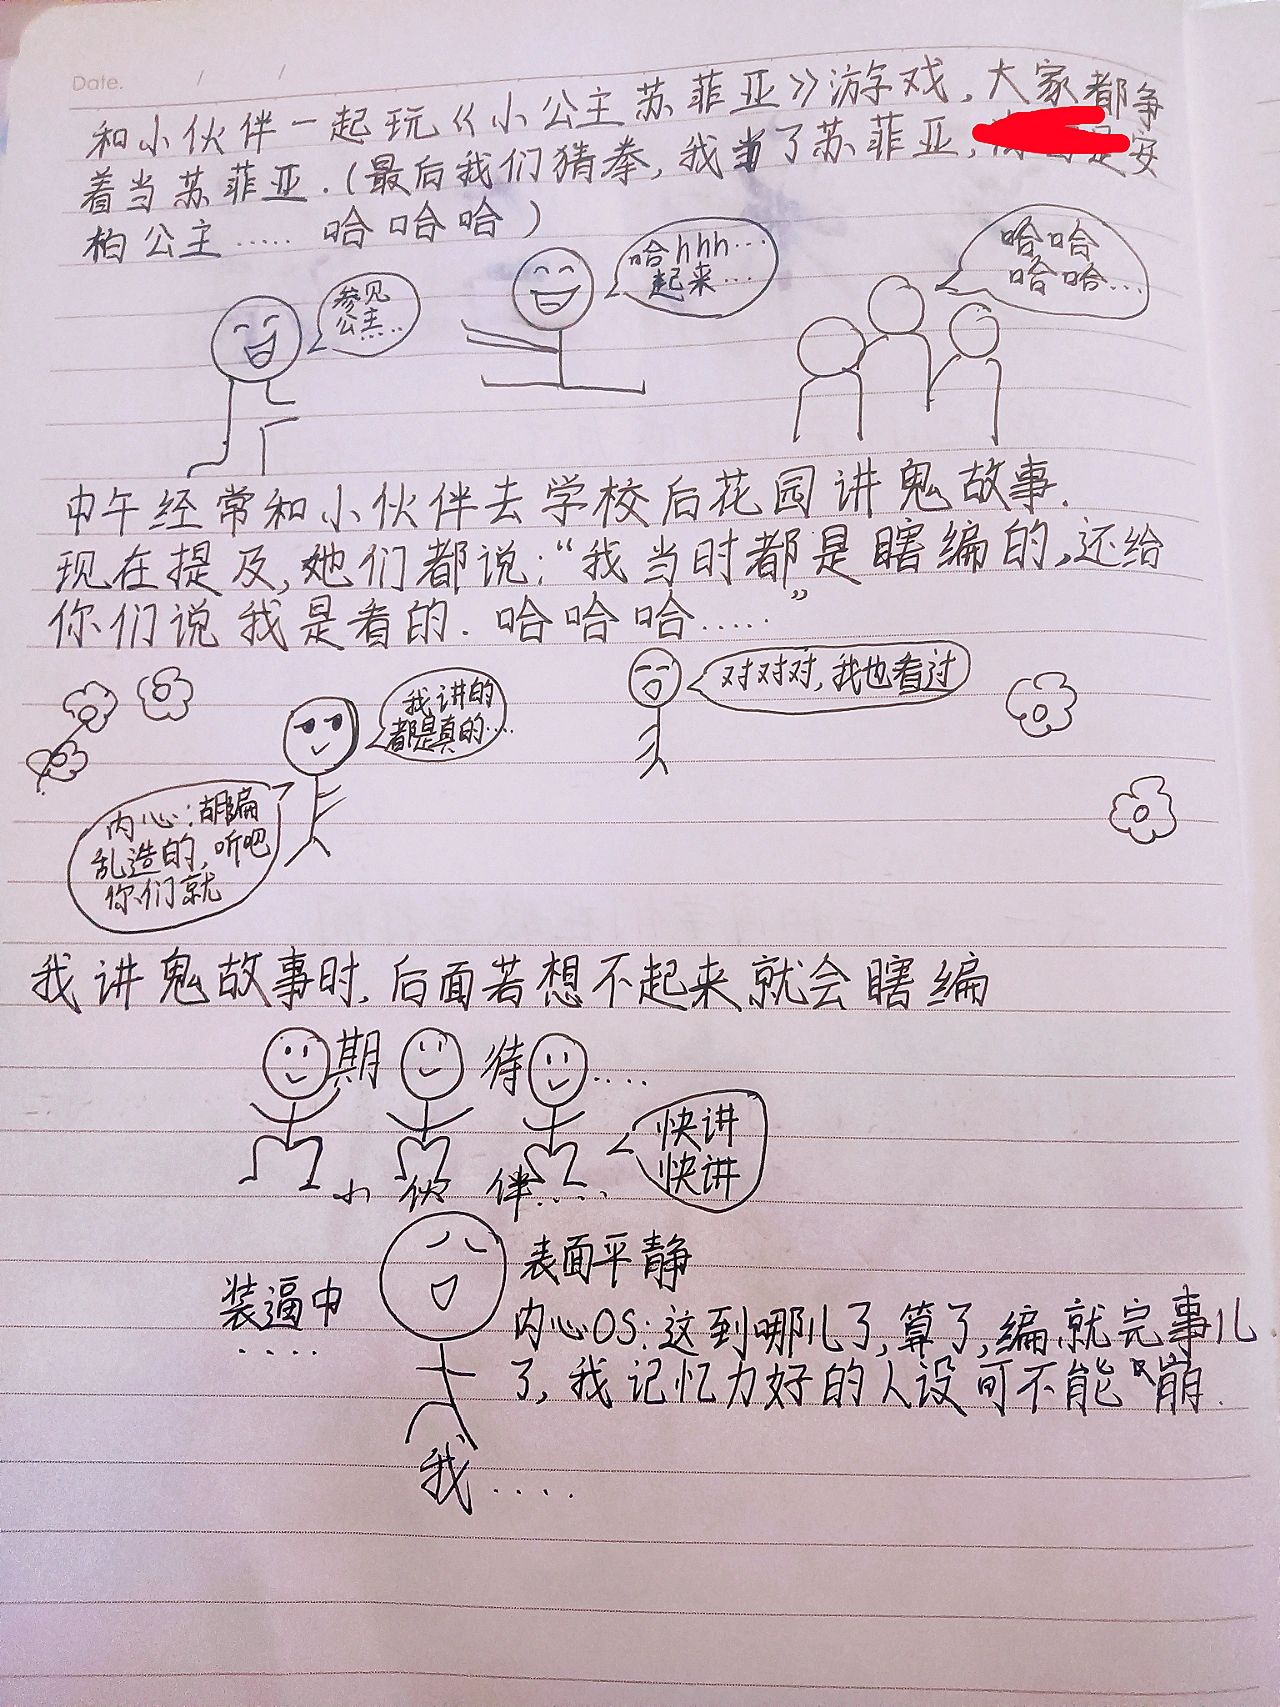 Date. / /
和小伙伴一起玩《小公主苏菲亚》游戏,大家都争
着当苏菲亚.(最后我们猜拳,我当了苏菲亚,是安
柏公主..... 哈哈哈)
参见
公主..
哈hhh...
起来...
哈哈
哈哈...
中午经常和小伙伴去学校后花园讲鬼故事.
现在提及,她们都说:“我当时都是瞎编的,还给
你们说我是看的.哈哈哈.....”
我讲的
都是真的...
对对对,我也看过
内心:胡编
乱造的,听吧
你们就
我讲鬼故事时,后面若想不起来就会瞎编
期待....
快讲
快讲
小伙伴.....
装逼中
....
表面平静
内心OS:这到哪儿了,算了,编就完事儿
了,我记忆力好的人设可不能崩.
我....